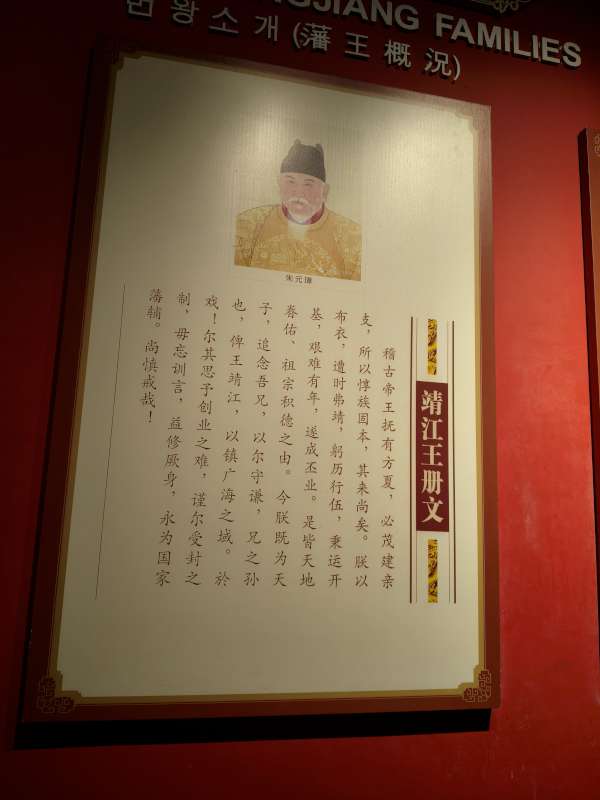 GJIANG FAMILIES
번왕소개 (藩王概況)
朱元璋
靖江王册文
稽古帝王抚有方夏，必茂建亲
支，所以惇族固本，其来尚矣。朕以
布衣，遭时弗靖，躬历行伍，秉运开
基，艰难有年，遂成丕业。是皆天地
眷佑、祖宗积德之由。今朕既为天
子，追念吾兄，以尔守谦，兄之孙
也，俾王靖江，以镇广海之域。於
戏！尔其思予创业之难，谨尔受封之
制，毋忘训言，益修厥身，永为国家
藩辅。尚慎戒哉！